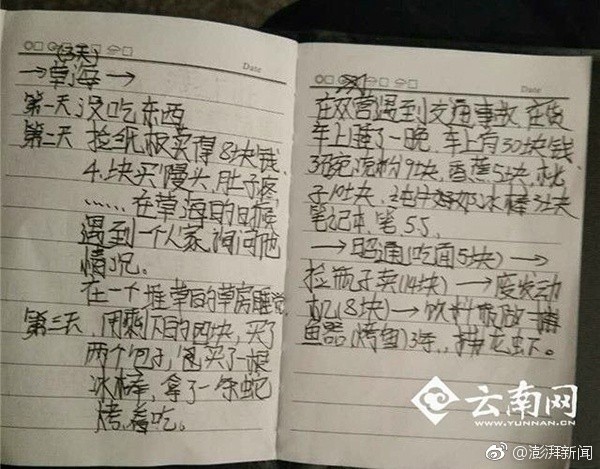 (3天)
→草海→
第一天 没吃东西
第二天 捡纸板卖得8块钱
4块买馒头,肚子疼,
……在草海的时候
遇到一个人家,询问他
情况。
在一个堆草的草房睡觉
第三天 用剩下的四块,买了
两个包子,图买了一根
冰棒,拿了一条蛇
烤着吃。
Date
在双营遇到交通事故,在货
车上睡了一晚,车上有30块钱,
3碗凉粉9块,香蕉5块,桃
子10块,纯牛奶冰棒3块
笔记本,笔5.5,
→昭通(吃面5块)→
捡瓶子卖(14块)→废发动
机(8块)→饮料瓶做一捕
鱼器(烤鱼)3条,
Date
云南网
WWW.YUNNAN.CN
@澎湃新闻